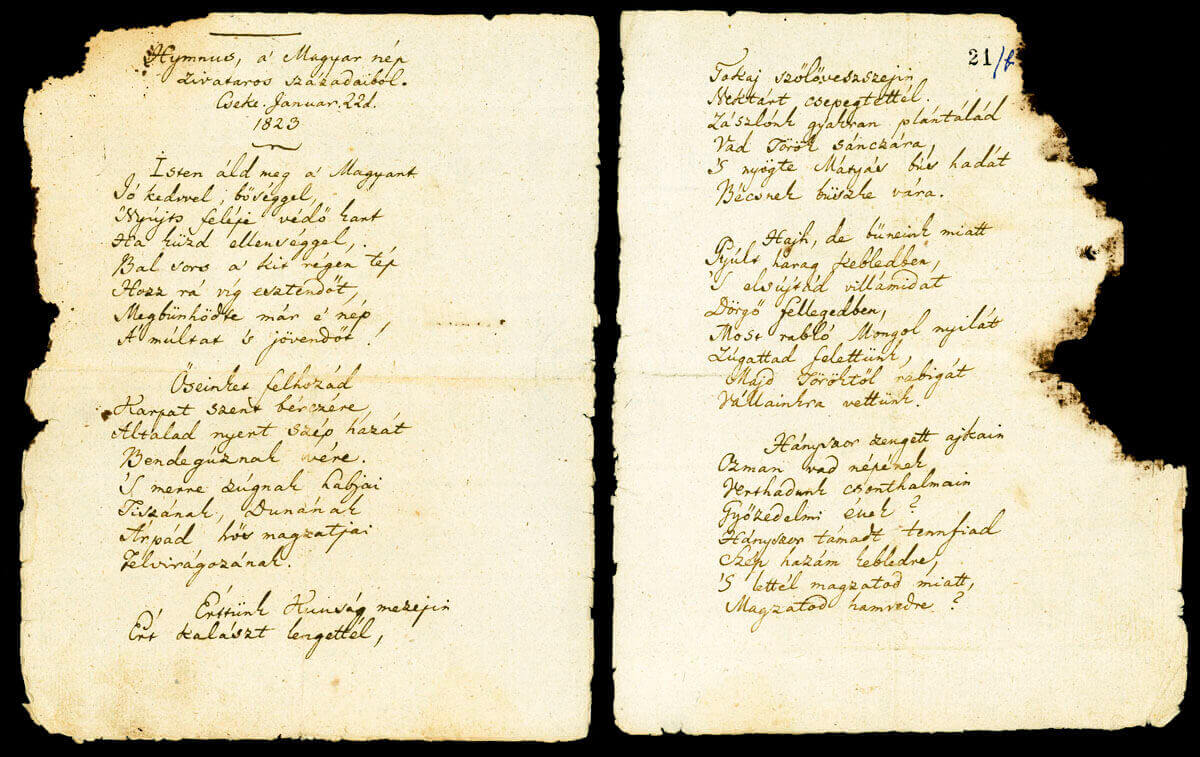 Hymnus, a' Magyar nép
zivataros századaiból.
Cseke. Januar. 22d.
1823
Isten áld meg a' Magyart
Jó kedvvel, bőséggel,
Nyújts feléje védő kart
Ha küzd ellenséggel,
Bal sors a' kit régen tép
Hozz rá víg esztendőt,
Megbűnhődte már e' nép
A' múltat 's jövendőt!
Őseinket felhozád
Kárpát szent bérczére,
Általad nyert szép hazát
Bendegúznak vére.
'S merre zúgnak habjai
Tiszának, Dunának
Árpád hős magzatjai
Felvirágozának.
Értünk Kunság mezejin
Ért kalászt lengettél,
21/b
Tokaj szőlővesszein
Nektárt csepegtettél.
Zászlónk gyakran plántálád
Vad Török sánczára,
'S nyögte Mátyás bús hadát
Bécsnek büszke vára.
Hajh, de bűneink miatt
Gyúlt harag kebledben,
'S elsújtád villámidat
Dörgő fellegedben,
Most rabló Mongol nyilát
Zúgattad felettünk,
Majd Töröktől rabigát
Vállainkra vettünk.
Hányszor zengett ajkain
Ozman vad népének
Verthadunk csonthalmain
Győzedelmi ének?
Hányszor támadt tennfiad
Szép hazám kebledre,
'S lettél magzatod miatt,
Magzatod hamvedre?